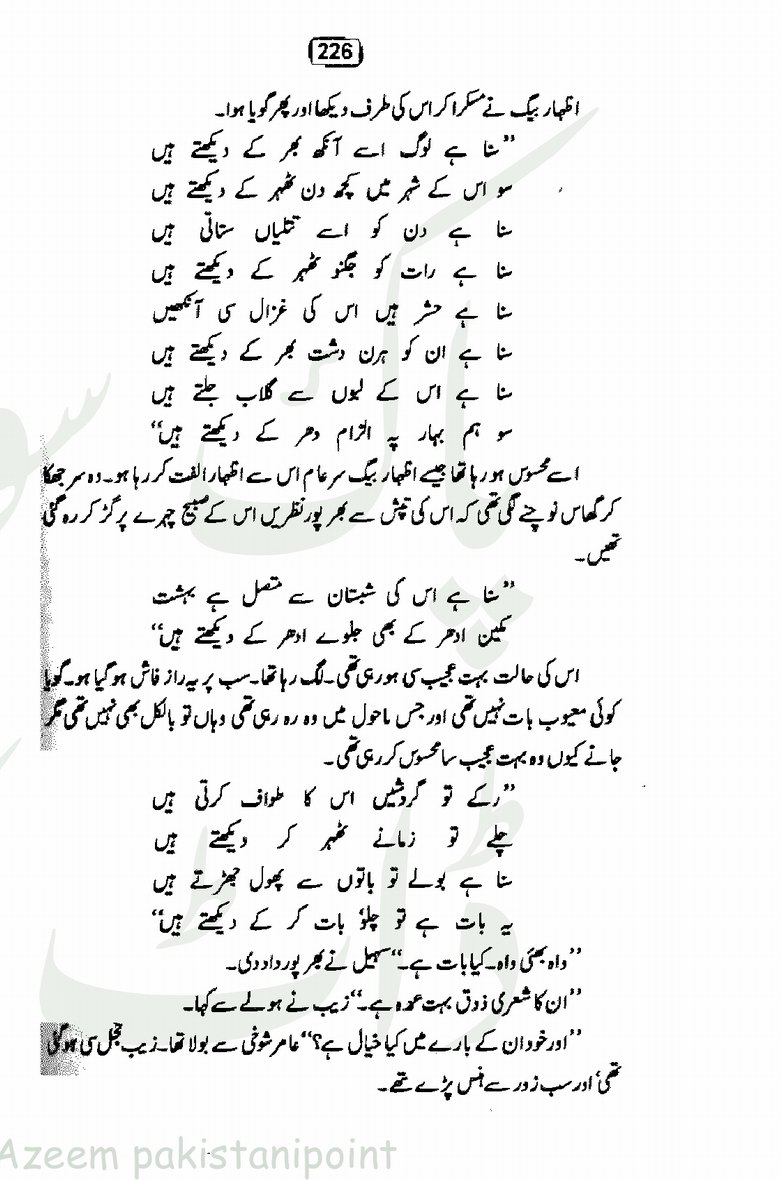 226
اظہار بیگ نے مسکرا کر اس کی طرف دیکھا اور پھر گویا ہوا۔
”سنا ہے لوگ اسے آنکھ بھر کے دیکھتے ہیں
سو اس کے شہر میں کچھ دن ٹھہر کے دیکھتے ہیں
سنا ہے دن کو اسے تتلیاں ستاتی ہیں
سنا ہے رات کو جگنو ٹھہر کے دیکھتے ہیں
سنا ہے حشر ہیں اس کی غزال سی آنکھیں
سنا ہے ان کو ہرن دشت بھر کے دیکھتے ہیں
سنا ہے اس کے لبوں سے گلاب جلتے ہیں
سو ہم بہار پہ الزام دھر کے دیکھتے ہیں“
اسے محسوس ہو رہا تھا جیسے اظہار بیگ سر عام اس سے اظہار الفت کر رہا ہو۔ وہ سر جھکا
کر گھاس نوچنے لگی تھی کہ اس کی تپش سے بھر پور نظریں اس کے صبیح چہرے پر گڑ کر رہ گئی
تھیں۔
”سنا ہے اس کی شبستان سے متصل ہے بہشت
مکین ادھر کے بھی جلوے ادھر کے دیکھتے ہیں“
اس کی حالت بہت عجیب سی ہو رہی تھی۔ لگ رہا تھا۔ سب پر یہ راز فاش ہو گیا ہو۔ گویا
کوئی معیوب بات نہیں تھی اور جس ماحول میں وہ رہ رہی تھی وہاں تو بالکل بھی نہیں تھی مگر
جانے کیوں وہ بہت عجیب سا محسوس کر رہی تھی۔
”رکے تو گردشیں اس کا طواف کرتی ہیں
چلے تو زمانے ٹھہر کر دیکھتے ہیں
سنا ہے بولے تو باتوں سے پھول جھڑتے ہیں
یہ بات ہے تو چلو، بات کر کے دیکھتے ہیں“
”واہ بھئی واہ۔ کیا بات ہے۔“ سہیل نے بھر پور داد دی۔
”ان کا شعری ذوق بہت عمدہ ہے۔“ زیب نے ہولے سے کہا۔
”اور خود ان کے بارے میں کیا خیال ہے؟“ عامر شوخی سے بولا تھا۔ زیب خجل سی ہو گئی
تھی‘ اور سب زور سے ہنس پڑے تھے۔
Azeem pakistanipoint
پاک
سو
ڈاٹ